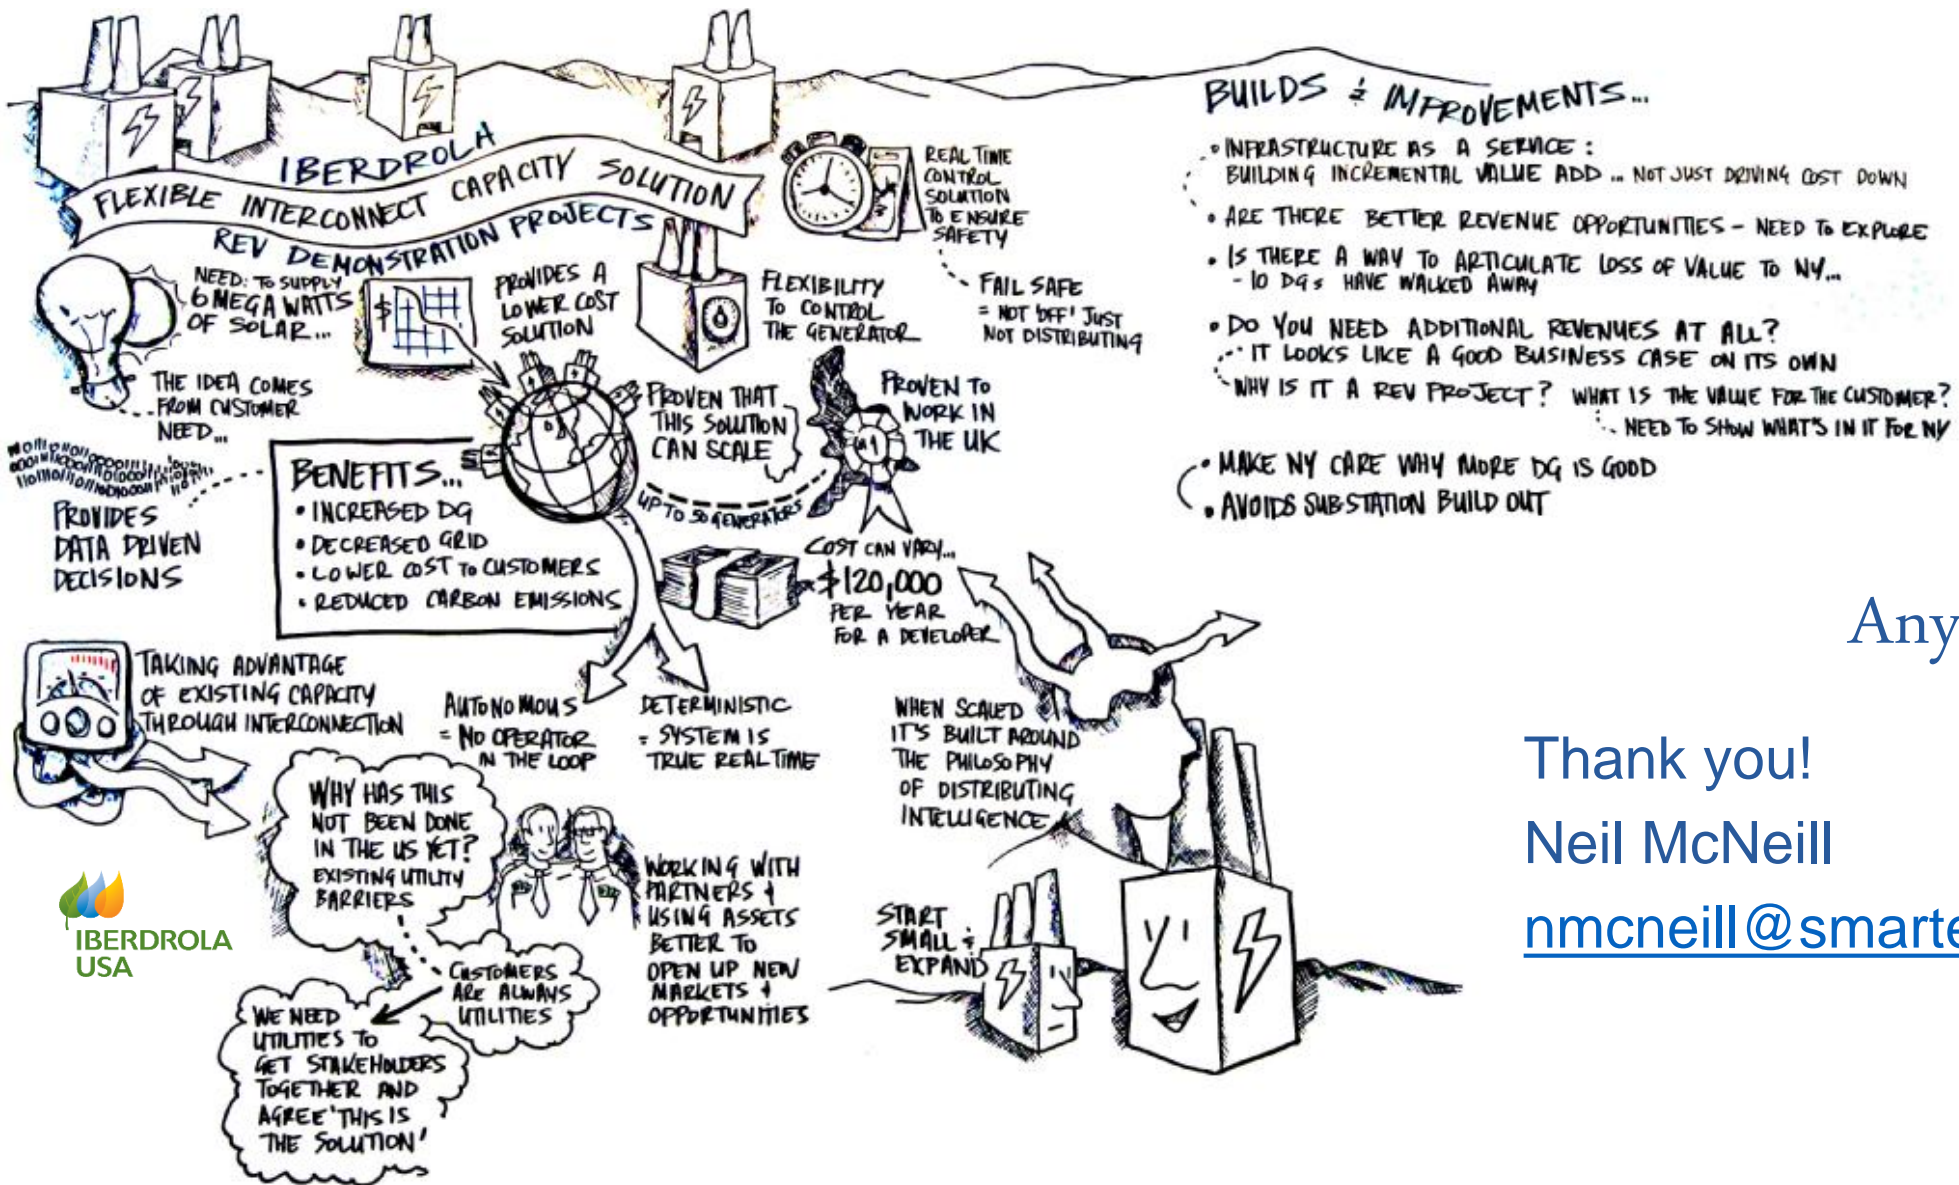 IBERDROLA
FLEXIBLE INTERCONNECT CAPACITY SOLUTION
REV DEMONSTRATION PROJECTS
REAL TIME
CONTROL
SOLUTION
TO ENSURE
SAFETY
FAIL SAFE
= NOT 'OFF' JUST
NOT DISTRIBUTING
NEED: TO SUPPLY
6 MEGA WATTS
OF SOLAR...
THE IDEA COMES
FROM CUSTOMER
NEED...
$
PROVIDES A
LOWER COST
SOLUTION
FLEXIBILITY
TO CONTROL
THE GENERATOR
PROVEN THAT
THIS SOLUTION
CAN SCALE
UP TO 50 GENERATORS
#1
PROVEN TO
WORK IN
THE UK
PROVIDES
DATA DRIVEN
DECISIONS
BENEFITS...
• INCREASED DG
• DECREASED GRID
• LOWER COST TO CUSTOMERS
• REDUCED CARBON EMISSIONS
COST CAN VARY...
$120,000
PER YEAR
FOR A DEVELOPER
TAKING ADVANTAGE
OF EXISTING CAPACITY
THROUGH INTERCONNECTION
AUTONOMOUS
= NO OPERATOR
IN THE LOOP
DETERMINISTIC
= SYSTEM IS
TRUE REAL TIME
WHEN SCALED
IT'S BUILT AROUND
THE PHILOSOPHY
OF DISTRIBUTING
INTELLIGENCE
WHY HAS THIS
NOT BEEN DONE
IN THE US YET?
EXISTING UTILITY
BARRIERS
CUSTOMERS
ARE ALWAYS
UTILITIES
WE NEED
UTILITIES TO
GET STAKEHOLDERS
TOGETHER AND
AGREE 'THIS IS
THE SOLUTION'
WORKING WITH
PARTNERS &
USING ASSETS
BETTER TO
OPEN UP NEW
MARKETS &
OPPORTUNITIES
START
SMALL &
EXPAND
IBERDROLA
USA
BUILDS & IMPROVEMENTS...
• INFRASTRUCTURE AS A SERVICE:
BUILDING INCREMENTAL VALUE ADD ... NOT JUST DRIVING COST DOWN
• ARE THERE BETTER REVENUE OPPORTUNITIES - NEED TO EXPLORE
• IS THERE A WAY TO ARTICULATE LOSS OF VALUE TO NY...
- 10 DGs HAVE WALKED AWAY
• DO YOU NEED ADDITIONAL REVENUES AT ALL?
IT LOOKS LIKE A GOOD BUSINESS CASE ON ITS OWN
WHY IS IT A REV PROJECT? WHAT IS THE VALUE FOR THE CUSTOMER?
NEED TO SHOW WHAT'S IN IT FOR NY
• MAKE NY CARE WHY MORE DG IS GOOD
• AVOIDS SUBSTATION BUILD OUT
Any
Thank you!
Neil McNeill
nmcneill@smarte